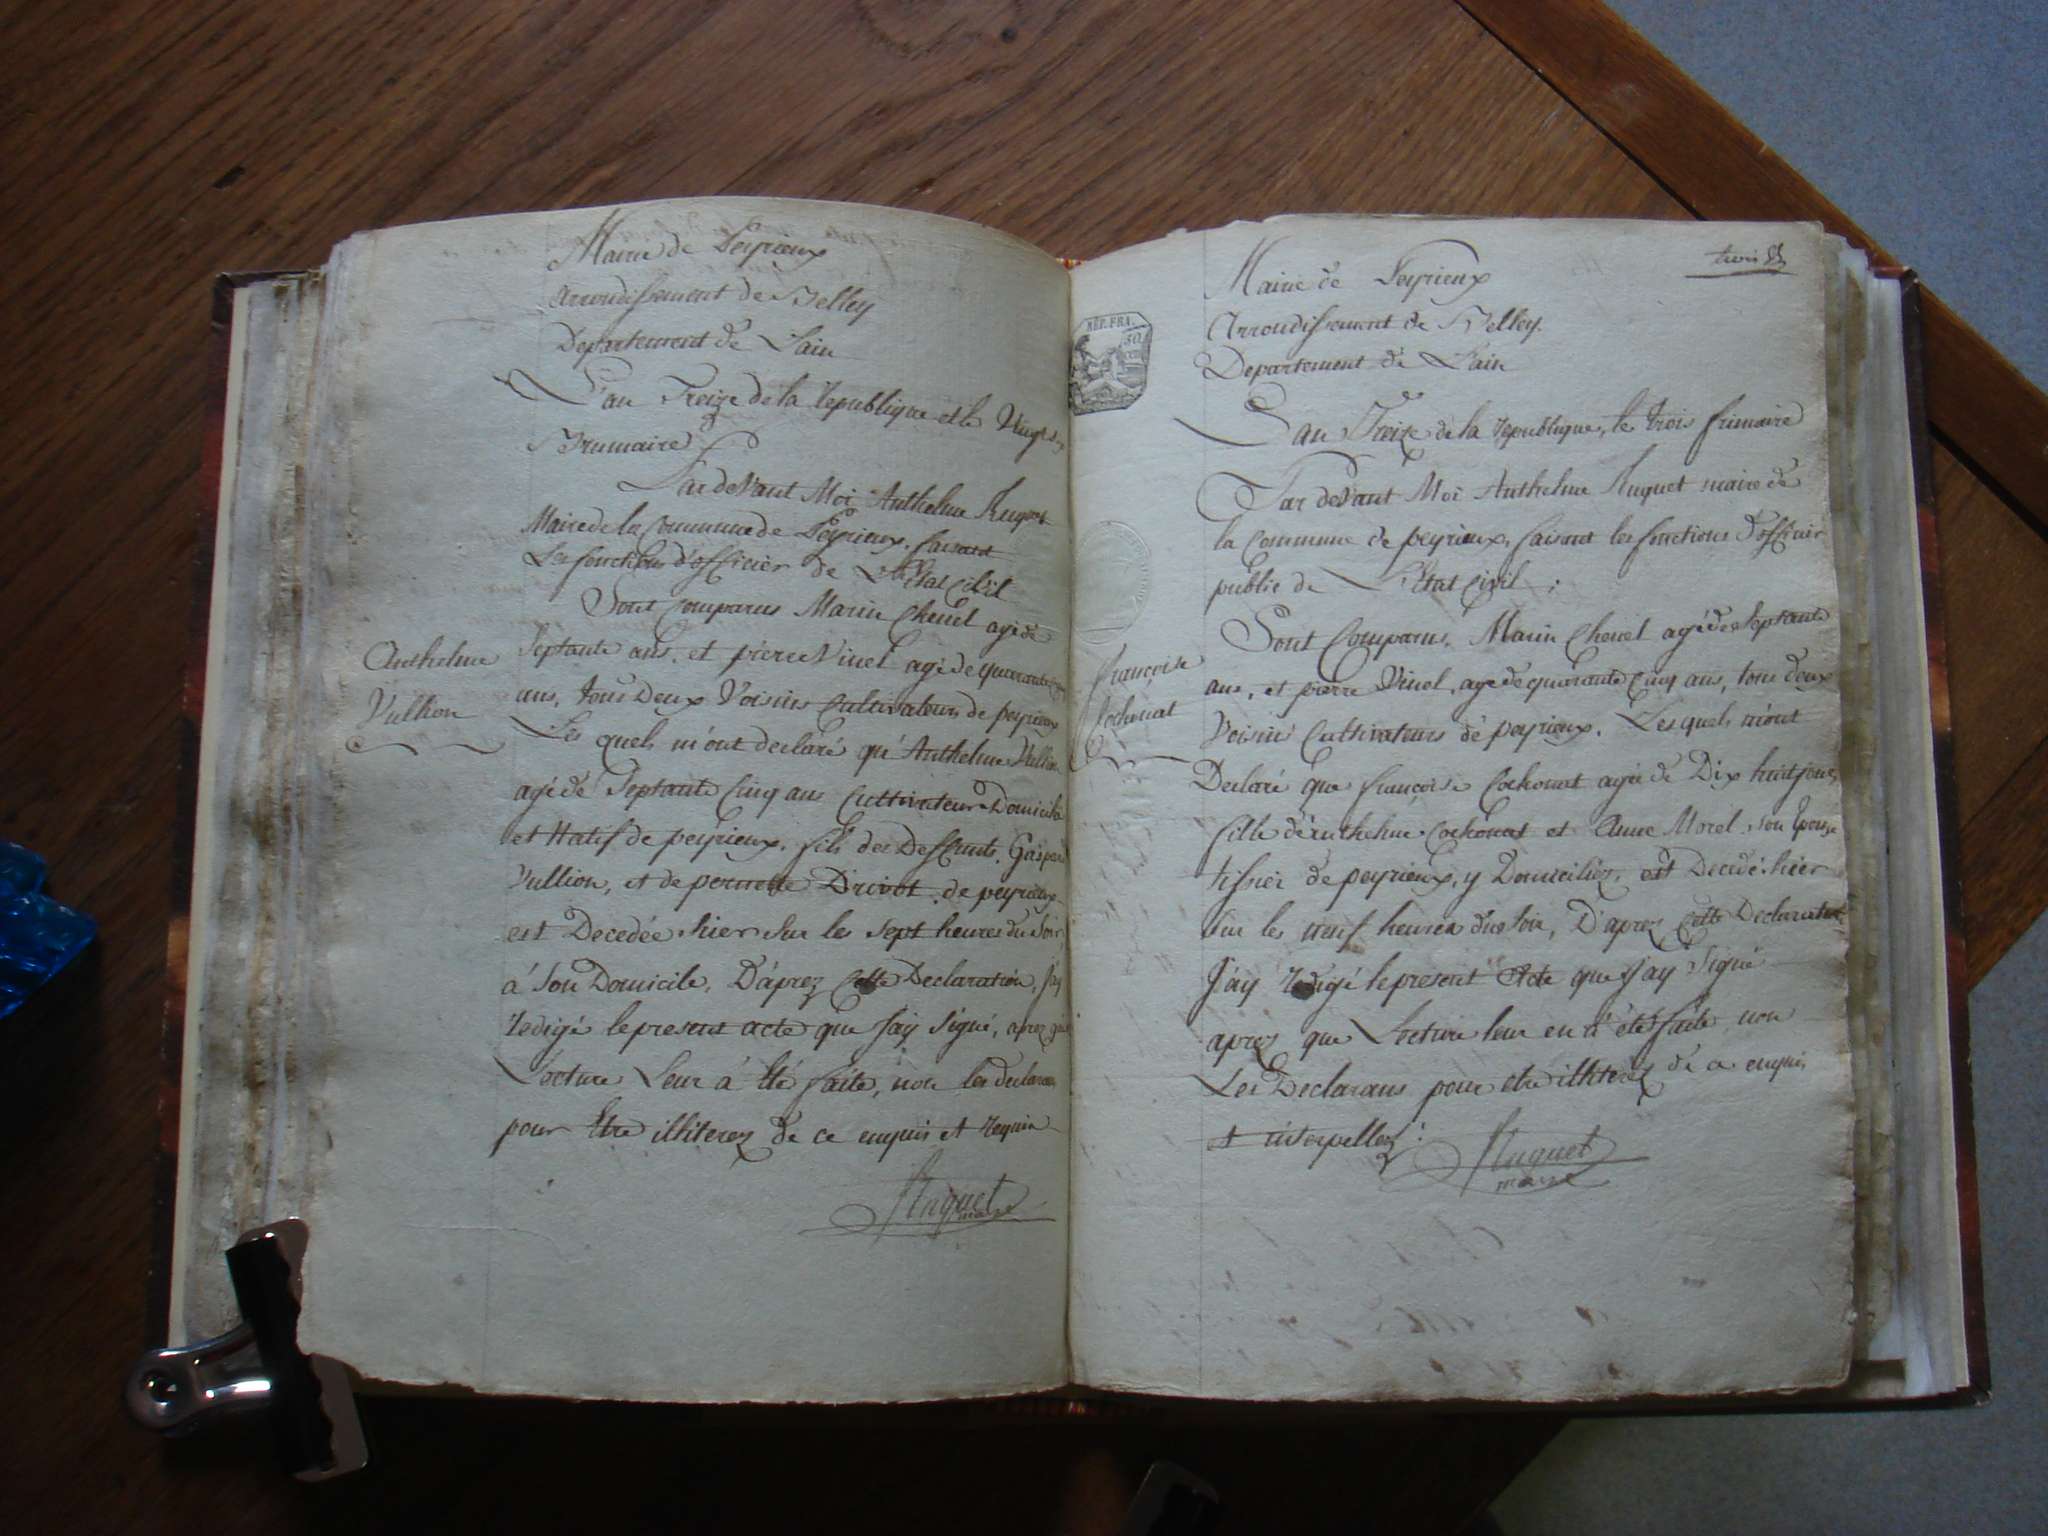 Mairie de Peyrieux
Arrondissement de Belley
Departement de L'ain
L'an Treize de la Republique et le Vingt
Brumaire
Par devant Moi Anthelme Huguet
Maire de la Commune de Peyrieux, faisant
Les fonctions d'officier de L'Etat Civil
Sont Comparus Marin Chenel agé de
Septante ans, et pierre Vinel agé de quarante cinq
ans, tous Deux Voisins Cultivateurs de peyrieux
Les quels m'ont declaré qu'Anthelme Vullion
agé de Septante Cinq ans Cultivateur Domicilié
et Natif de peyrieux, fils des Deffunts, Gaspard
Vullion, et de pernette Drivot, de peyrieux
est Decedée hier sur les sept heures du Soir,
á Son Domicile, D'áprez Cette Declaration, J'ay
redigé le present acte que J'ay Signé, aprez que
Lecture Leur á Eté faite, non les declarans
pour Etre illiterez de ce enquis et requis
Huguet
maire
Anthelme
Vullion
trois
REP. FRA.
50
Mairie de Peyrieux
Arrondissement de Belley.
Departement de L'ain
L'an Treize de la republique, le trois frimaire
Par devant Moi Anthelme Huguet maire de
la Commune de peyrieux, faisant les fonctions D'officier
public de L'Etat Civil ;
Sont Comparus, Marin Chenel agé de Septante
ans, et pierre Vinel, age de quarante Cinq ans, tous deux
Voisins Cultivateurs de peyrieux. Lesquels m'ont
Declaré que françoise Cochonat agée de Dix huit jours
fille d'anthelme Cochonat et Anne Morel son Epouse
tissier de peyrieux, y Domiciliez, est Decedé hier
Sur les neuf heures du Soir, D'aprez Cette Declaration
J'ay redigé le present Acte que J'ay Signé
aprez que Lecture leur en a été faite, non
Les Declarans pour etre illiterez de ce enquis
et interpellez.
Huguet
maire
françoise
Cochonat